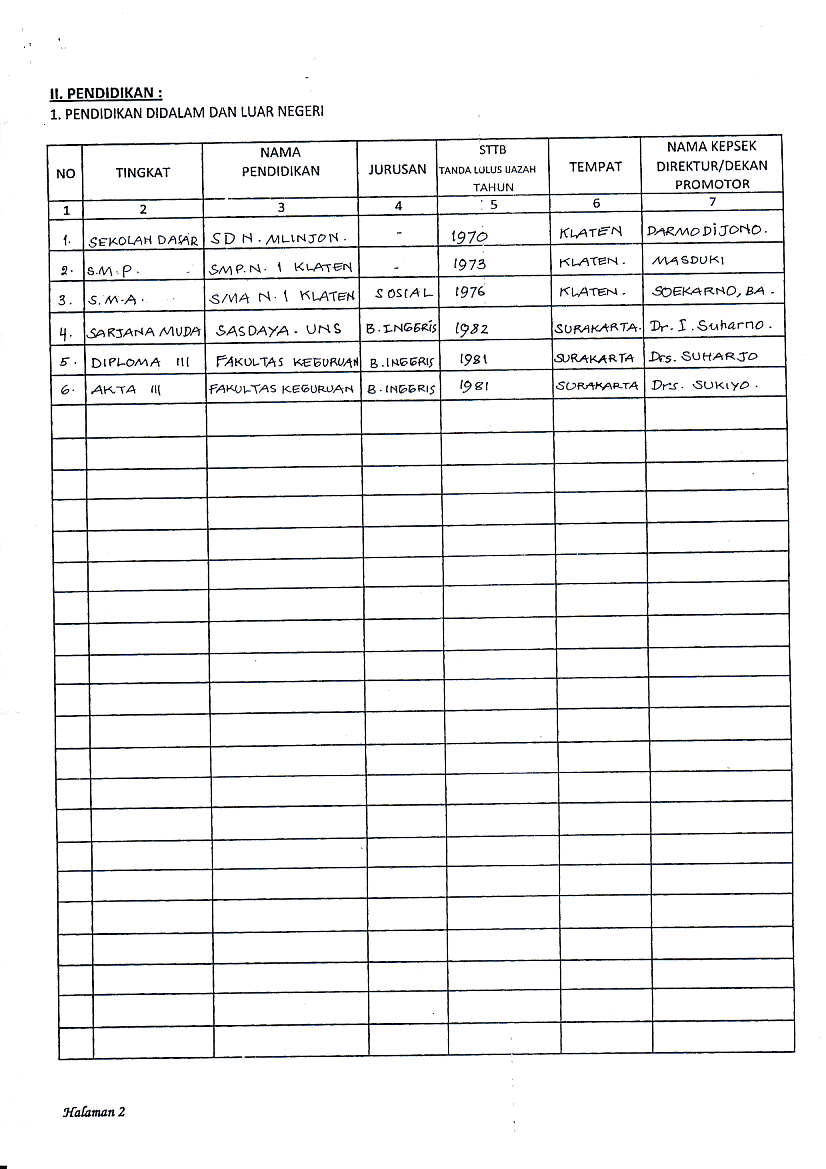 II. PENDIDIKAN :
1. PENDIDIKAN DIDALAM DAN LUAR NEGERI
NO TINGKAT NAMA PENDIDIKAN JURUSAN STTB TANDA LULUS IJAZAH TAHUN TEMPAT NAMA KEPSEK DIREKTUR/DEKAN PROMOTOR
1 2 3 4 5 6 7
1. SEKOLAH DASAR SDN. MLINJON. - 1970 KLATEN DARMODIJONO.
2. S.M.P. SMP.N. 1 KLATEN - 1973 KLATEN. MASDUKI
3. S.M.A. SMA N. 1 KLATEN SOSIAL 1976 KLATEN. SOEKARNO, BA.
4. SARJANA MUDA SASDAYA - UNS B. INGGRIS 1982 SURAKARTA. Dr. I. Suharno.
5. DIPLOMA III FAKULTAS KEGURUAN B. INGGRIS 1981 SURAKARTA Drs. SUHARJO
6. AKTA III FAKULTAS KEGURUAN B. INGGRIS 1981 SURAKARTA Drs. SUKIYO.
Halaman 2